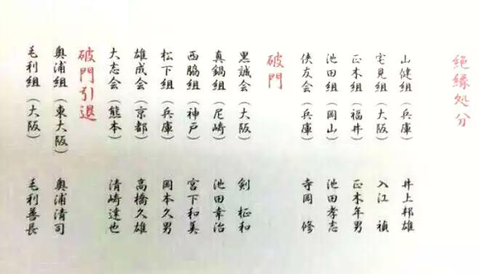 絶縁処分
山健組(兵庫) 井上邦雄
宅見組(大阪) 入江 禎
正木組(福井) 正木年男
池田組(岡山) 池田孝志
侠友会(兵庫) 寺岡 修
破門
黒誠会(大阪) 剣 柾和
真鍋組(尼崎) 池田幸治
西脇組(神戸) 宮下和美
松下組(兵庫) 岡本久男
雄成会(京都) 高橋久雄
大志会(熊本) 清崎達也
破門引退
奥浦組(東大阪) 奥浦清司
毛利組(大阪) 毛利善長